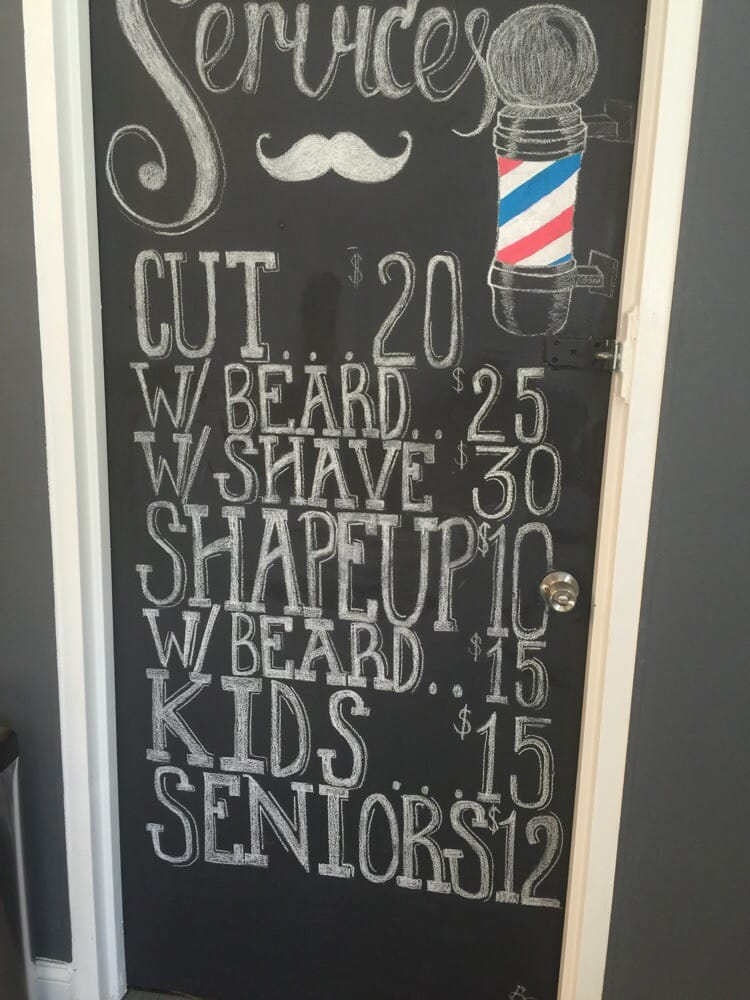 Services
CUT... $20
W/ BEARD.. $25
W/ SHAVE $30
SHAPEUP $10
W/ BEARD.. $15
KIDS .... $15
SENIORS $12